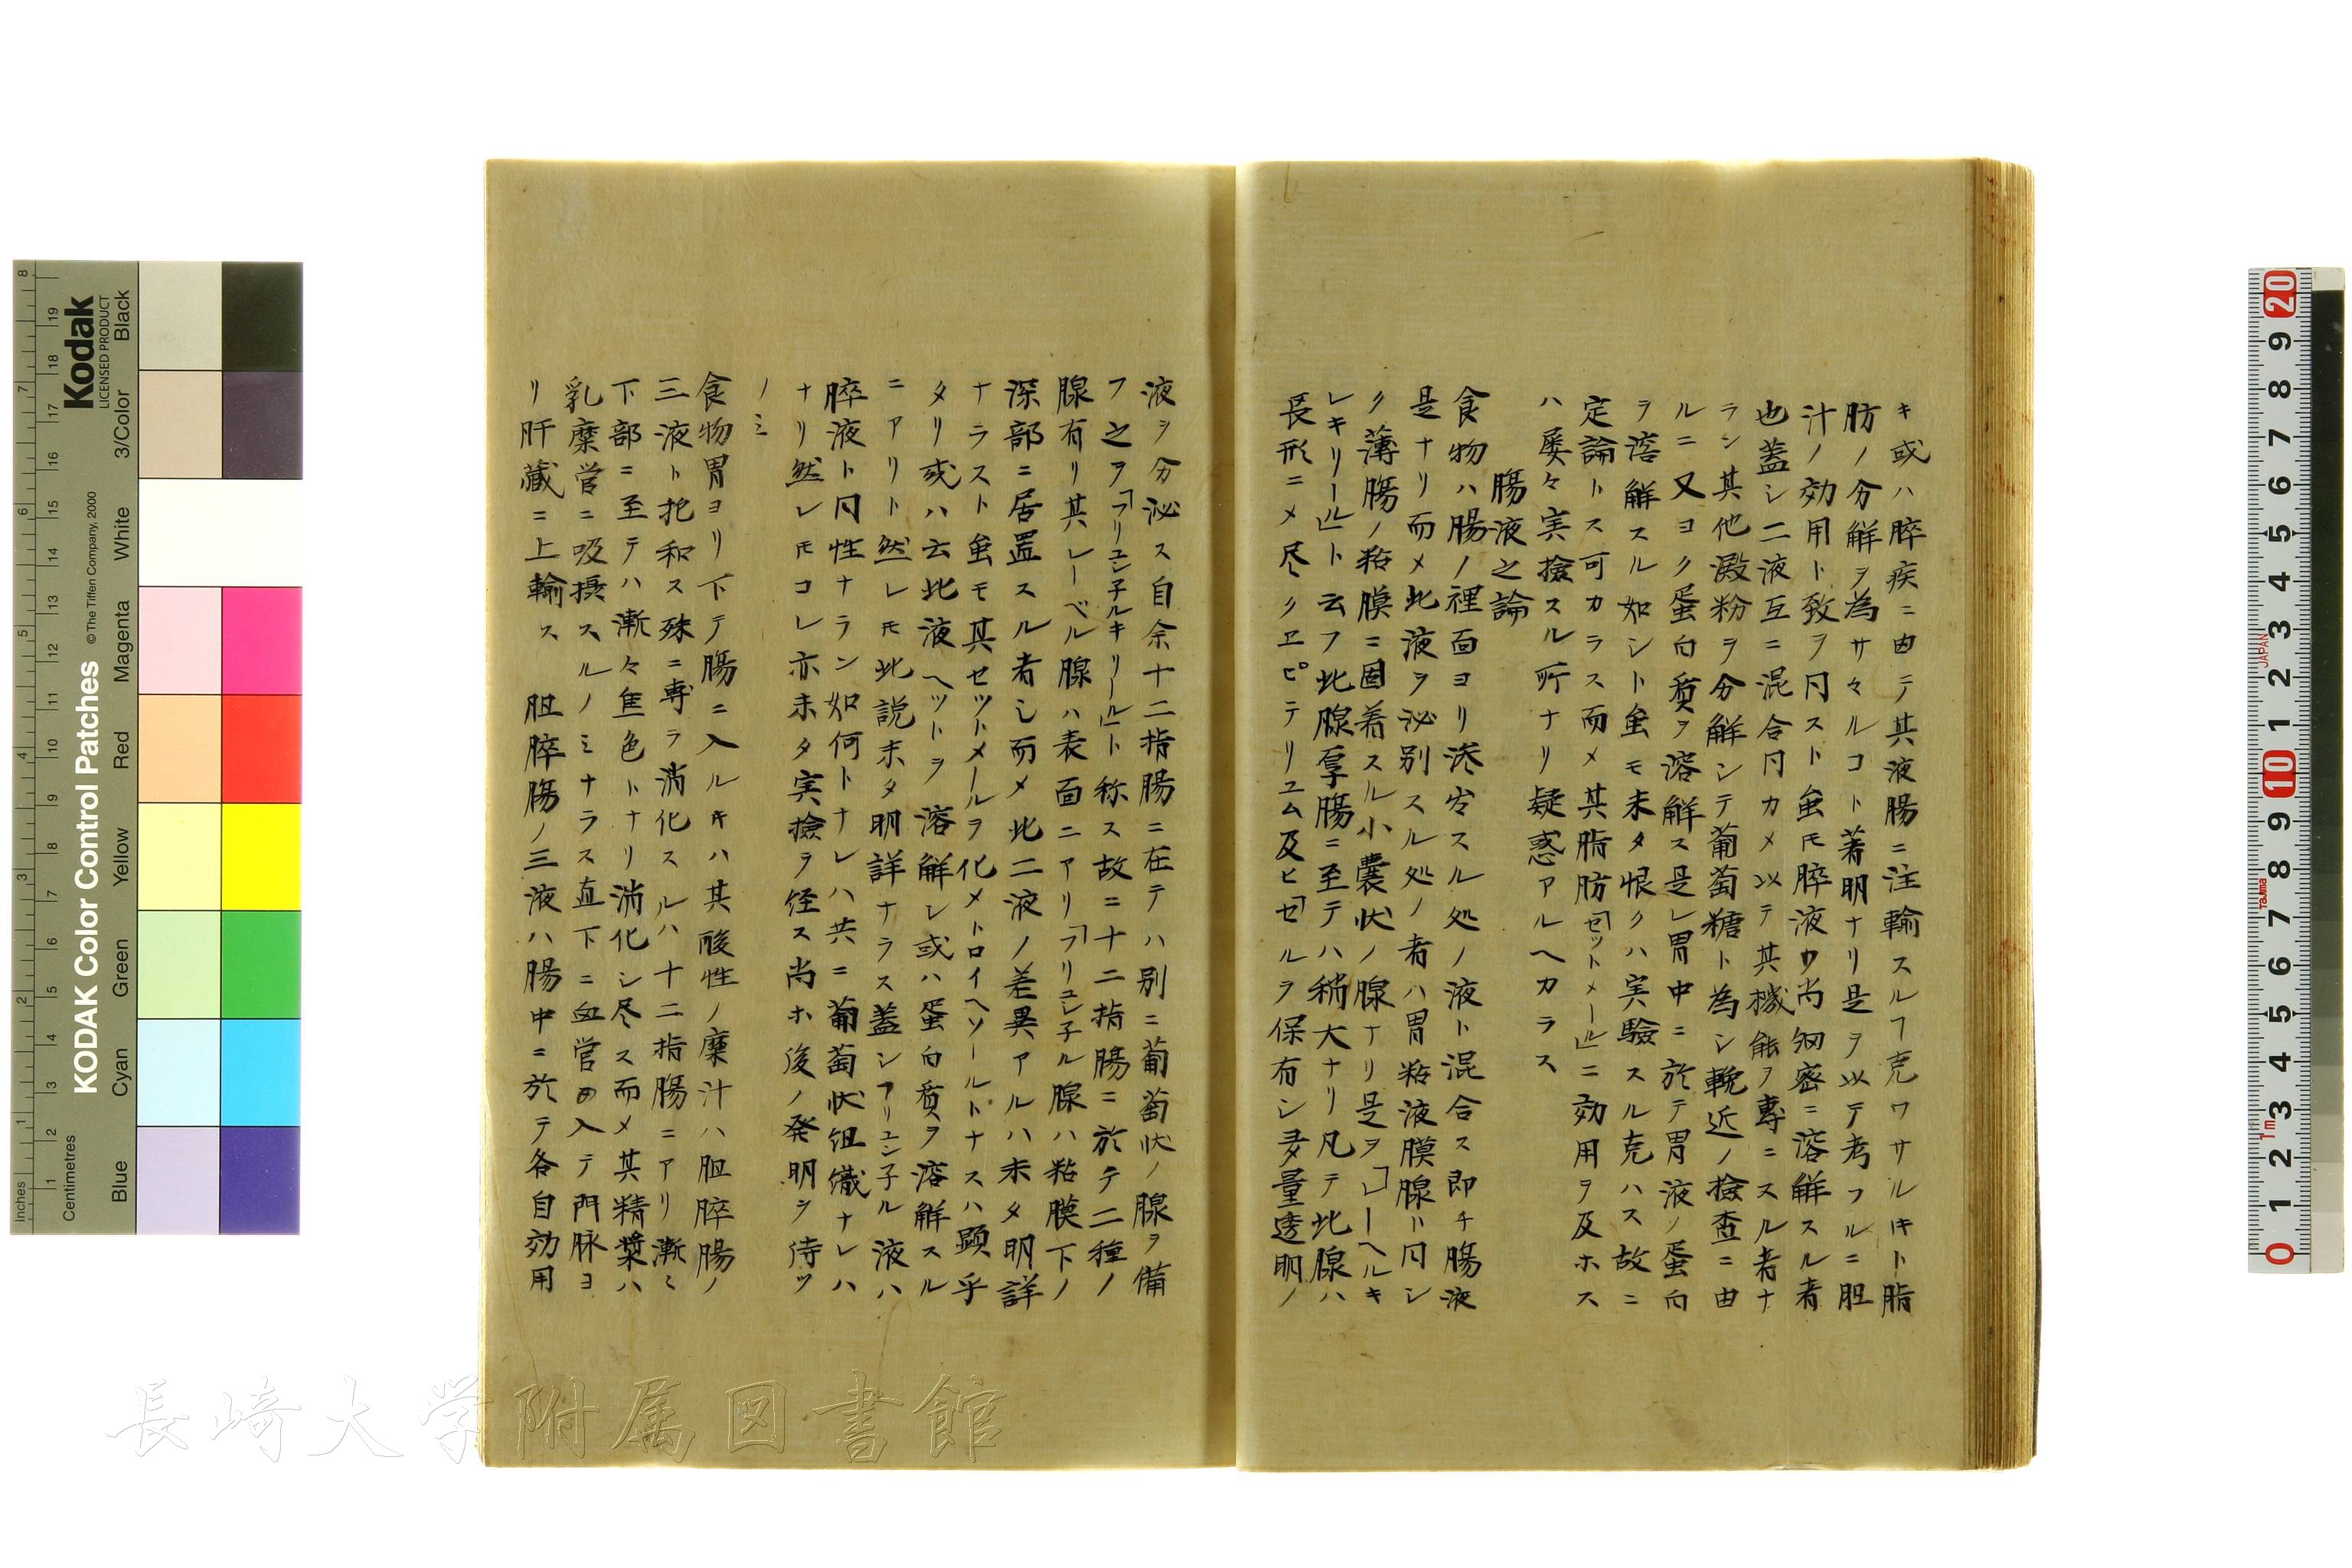 キ或ハ膵疾ニ由テ其液腸ニ注輸スルヿ克ワサルキト脂
肪ノ分解ヲ為サヽルコト著明ナリ是ヲ以テ考フルニ胆
汁ノ効用ト致ヲ同スト虽𪜈膵液ハ尚細密ニ溶解スル者
也蓋シ二液互ニ混合同カメ以テ其機能ヲ專ニスル者ナ
ラン其他澱粉ヲ分解シテ葡萄糖ト為シ輓近ノ撿査ニ由
ルニ又ヨク蛋白質ヲ溶解ス是レ胃中ニ於テ胃液ノ蛋白
ヲ溶解スル如シト虽モ未タ恨クハ実驗スル克ハス故ニ
定論トス可カラス而メ其脂肪「セットメール」ニ効用ヲ及ホス
ハ屡々実撿スル所ナリ疑惑アルヘカラス
腸液之論
食物ハ腸ノ裡面ヨリ滲出スル処ノ液ト混合ス即チ腸液
是ナリ而メ此液ヲ泌別スル処ノ者ハ胃粘液膜腺ト同シ
ク薄腸ノ粘膜ニ固着スル小嚢状ノ腺ナリ是ヲ「レーヘルキ
レキリール」ト云フ此腺厚腸ニ至テハ稍大ナリ凡テ此腺ハ
長形ニメ尽クヱピテリユム及ヒ「セルラ保有シ多量透明ノ
液ヲ分泌ス自余十二指腸ニ在テハ別ニ葡萄状ノ腺ヲ備
フ之ヲ「フリユン子ルキリール」ト称ス故ニ十二指腸ニ於テ二種ノ
腺有リ其レーベル腺ハ表面ニアリ「フリユン子ル腺ハ粘膜下ノ
深部ニ居置スル者シ而メ此二液ノ差異アルハ未タ明詳
ナラスト虽モ其セツトメールヲ化メトロイヘソールトナスハ顕乎
タリ或ハ云此液ヘツトヲ溶解シ或ハ蛋白質ヲ溶解スル
ニアリト然レ𪜈此説未タ明詳ナラス蓋シフリユン子ル液ハ
膵液ト同性ナラン如何トナレハ共ニ葡萄状組織ナレハ
ナリ然レ𪜈コレ亦未タ実撿ヲ経ス尚ホ後ノ発明ヲ待ツ
ノミ
食物胃ヨリ下テ腸ニ入ルキハ其酸性ノ糜汁ハ胆膵腸ノ
三液ト把和ス殊ニ專ラ消化スルハ十二指腸ニアリ漸ミ
下部ニ至テハ漸々焦色トナリ消化シ尽ス而メ其精漿ハ
乳糜管ニ吸摂スルノミナラス直下ニ血管ニ入テ門脉ヨ
リ肝蔵ニ上輸ス 胆膵腸ノ三液ハ腸中ニ於テ各自効用
長崎大学附属図書館
Kodak
LICENSED PRODUCT
KODAK Color Control Patches
© The Tiffen Company, 2000
Inches
Centimetres
Blue Cyan Green Yellow Red Magenta White 3/Color Black
JAPAN
TAJIMA
1m